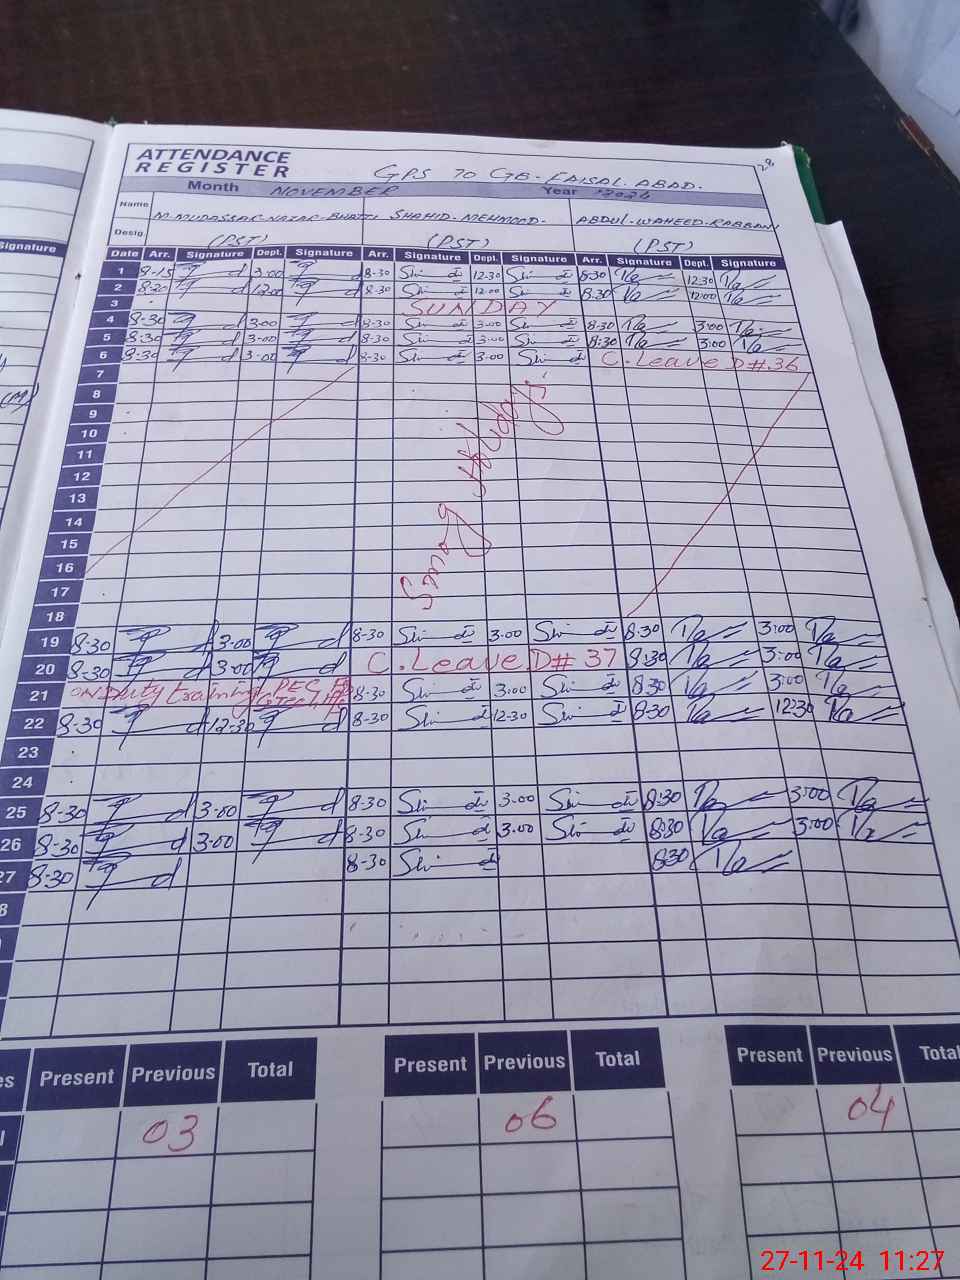 ATTENDANCE
REGISTER
GPS 70 GB-FAISALABAD.
28
Month NOVEMBER Year
Name M.MUDASSAR NAZAR BHATTI SHAHID-MEHMOOD- ABDUL-WAHEED-RABBANI
Desig (PST) (PST) (PST)
Signature
Date Arr. Signature Dept. Signature Arr. Signature Dept. Signature Arr. Signature Dept. Signature
1 8-15 3:00 8-30 12-30 8:30 12:30
2 8-30 12:00 8-30 12:00 8:30 12:00
3 SUNDAY
4 8-30 3:00 8-30 3:00 8:30 3:00
5 8-30 3:00 8-30 3:00 8:30 3:00
6 8-30 3:00 8-30 3:00 C. Leave D#36
7
8
9
10
11
12
13
14
15
16
17
18
Smog Holidays
19 8-30 3:00 8-30 3:00 8:30 3:00
20 8-30 3:00 C. Leave D# 37 8:30 3:00
21 ON Duty training 8-30 3:00 8:30 3:00
22 8-30 12-30 8-30 12-30 8:30 12:30
23
24
25 8-30 3:00 8-30 3:00 8:30 3:00
26 8-30 3:00 8-30 3:00 8:30 3:00
27 8-30 8-30 8:30
8
es Present Previous Total Present Previous Total Present Previous Total
03 06 04
27-11-24 11:27